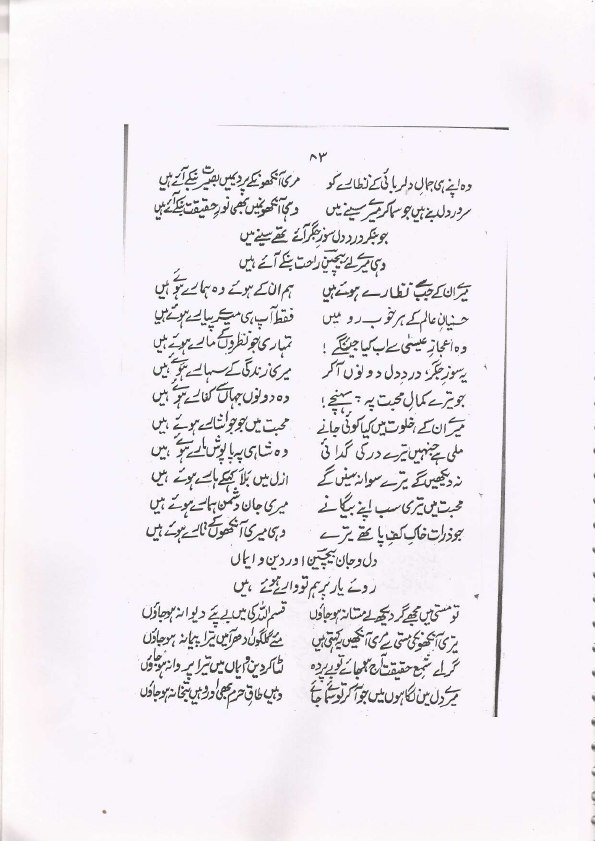 ۸۳
وہ اپنے ہی جمالِ دلربائی کے نظارے کو مری آنکھونکے پردیمیں بصیرت بنکے آئے ہیں
سرورِ دل بنے ہیں جو سما کر میرے سینے میں وہی آنکھونمیں بھی نورِ حقیقت بنکے آئے ہیں
جو بنکر دردِ دل سوزِ جگر آئے تھے سینے میں
وہی میرے لئے بیچینؔ راحت بنکے آئے ہیں
میرے ان کے جب نظارے ہوئے ہیں ہم ان کے ہوئے وہ ہمارے ہوئے ہیں
حسینانِ عالم کے ہر خوب رو میں فقط آپ ہی میرے پیارے ہوئے ہیں
وہ اعجازِ عیسیٰ سے اب کیا جئینگے ! تمہاری جو نظروں کے مارے ہوئے ہیں
یہ سوزِ جگر، دردِ دل دونوں آکر میری زندگی کے سہارے ہوئے ہیں
جو تیرے کمالِ محبت پہ پہنچے ! وہ دونوں جہاں کے کنارے ہوئے ہیں
میرے ان کے خلوت میں کیا کوئی جانے محبت میں جو جو اشارے ہوئے ہیں
ملی ہے جنہیں تیرے در کی گدائی وہ شاہی پہ پاپوش مارے ہوئے ہیں
نہ دیکھیں گے تیرے سوا نہ سنیں گے ازل میں بلا کہکے ہارے ہوئے ہیں
محبت میں تیری سب اپنے بیگانے میری جان و دشمن ہمارے ہوئے ہیں
جو ذرات خاکِ کفِ پا تھے تیرے وہی میری آنکھوں کے تارے ہوئے ہیں
دل و جان بیچینؔ اور دین و ایماں
روئے یار پر ہم تو وارے ہوئے ہیں
تو مستی میں مجھے گر دیکھ لے مستانہ ہو جاؤں قسم اللہ کی میں بے پئے دیوانہ ہو جاؤں
تیری آنکھونکی مستی سے مری آنکھیں یہ کہتی ہیں مئے گلگوں ادھر آ میں تیرا پیمانہ ہو جاؤں
گر اے شمعِ حقیقت آج ہو جائے تو بے پردہ لٹا کر دین و ایماں میں تیرا پروانہ ہو جاؤں
میرے دل میں نگاہوں میں جو آکر تو سما جائے وہیں طاقِ حرم بھی اور وہیں بتخانہ ہو جاؤں